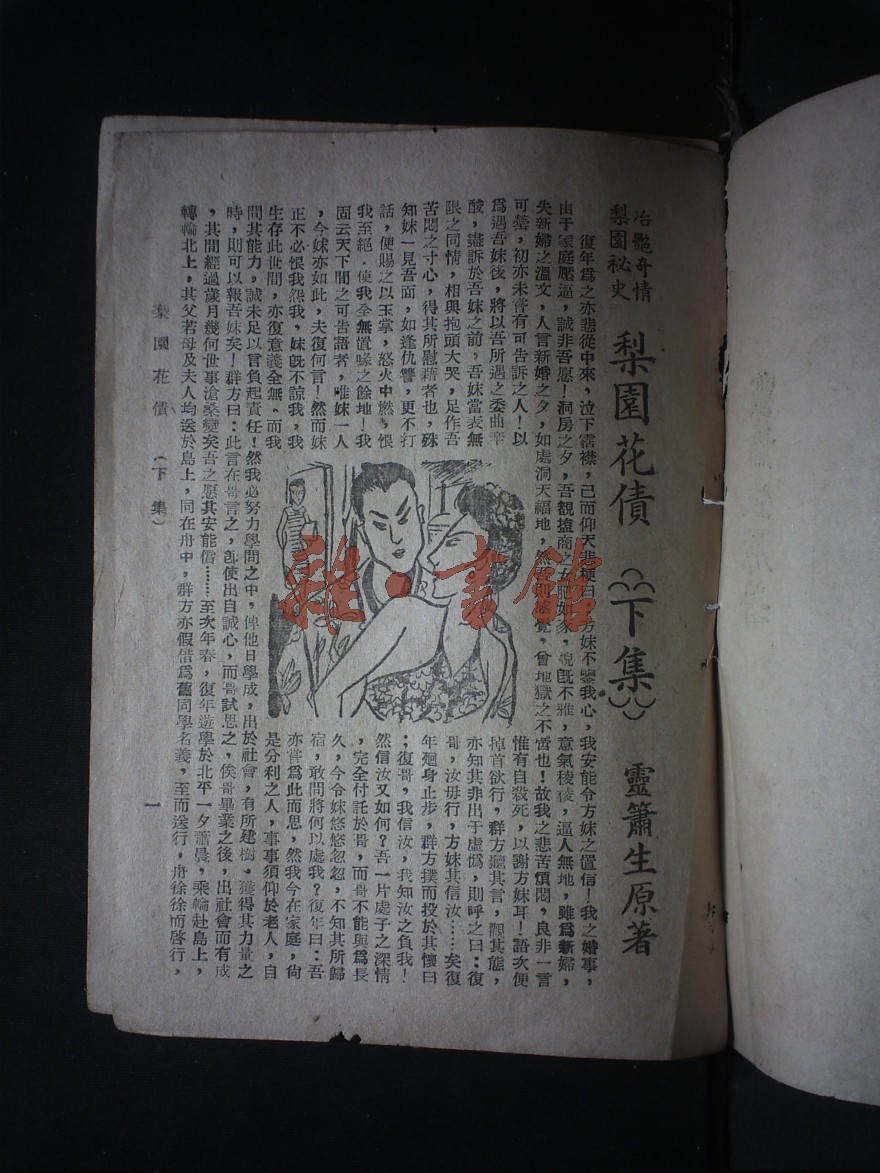 冶艷奇情
梨園祕史
梨園花債
(下集)
靈簫生原著
復年爲之亦悲從中來，泣下霑襟，已而仰天悲梗曰，方妹不鑒我心，我安能令方妹之置信！我之婚事，
由于家庭壓逼，誠非吾愿！洞房之夕，吾觀塩商之女肥如豕，貌旣不雅，意氣稜稜，逼人無地，雖爲新婦，
失新婦之溫文，人言新婚之夕，如處洞天福地，然吾則感覺，曾地獄之不啻也！故我之悲苦憤悶，良非一言
可罄，初亦未嘗有可告訴之人！以
爲遇吾妹後，將以吾所遇之委曲辛
酸，盡訴於吾妹之前，吾妹當表無
限之同情，相與抱頭大哭，足作吾
苦悶之寸心，得其所慰藉者也，殊
知妹一見吾面，如逢仇讐，更不打
話，便賜之以玉掌，怒火中燃，恨
我至絕，使我全無置喙之餘地！我
固云天下間之可吿語者，唯妹一人
，今妹亦如此，夫復何言！然而妹
正不必恨我怨我，妹旣不諒我，我
生存此世間，亦復意義全無，而我
惟有自殺死，以謝方妹耳！語次便
掉首欲行，群方聽其言，觀其態，
亦知其非出于虛僞，則呼之曰：復
哥，汝毋行，方妹其信汝……矣復
年廻身止步，群方撲而投於其懷曰
：復哥，我信汝，我知汝之負我！
然信汝又如何？吾一片處子之深情
，完全付託於哥，而哥不能與爲長
久，今令妹悠悠忽忽，不知其所歸
宿，敢問將何以處我？復年曰：吾
亦嘗爲此而思，然我今在家庭，尙
是分利之人，事事須仰於老人，自
問其能力，誠未足以言負起責任！然我必努力學問之中，俾他日學成，出於社會，有所建樹，獲得其力量之
時，則可以報吾妹矣！群方曰：此言在哥言之，卽使出自誠心，而哥試思之，俟哥畢業之後，出社會而有成
，其間經過歲月幾何世事滄桑變矣吾之愿其安能償……至次年春，復年遊學於北平一夕蕭晨，乘輪赴島上，
轉輪北上，其父若母及夫人均送於島上，同在舟中，群方亦假借爲舊同學名義，至而送行，舟徐徐而啓行，
梨園花債（下集）
一
雜·書館